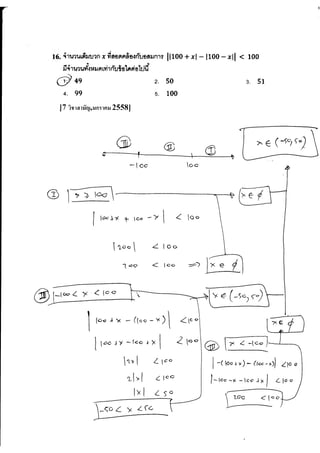 16. จำนวนเต็มบวก x ที่สอดคล้องกับอสมการ ||100 + x| − |100 − x|| < 100
มีจำนวนทั้งหมดเท่ากับข้อใดต่อไปนี้
1. 49 2. 50 3. 51
4. 99 5. 100
[7 วิชาสามัญ,มกราคม 2558]
x ∈ (-50, 50)
III II I
-100 100
I x ≥ 100 x ∈ ∅
| 100 + x + 100 - x | < 100
| 200 | < 100
200 < 100 ⇒ x ∈ ∅
II -100 < x < 100 x ∈ (-50, 50)
| 100 + x - (100 - x) | < 100
| 100 + x - 100 + x | < 100
|2x| < 100
2|x| < 100
|x| < 50
-50 < x < 50
x ∈ ∅
III x < -100
| -(100 + x) - (100 - x) | < 100
| -100 - x - 100 + x | < 100
200 < 100